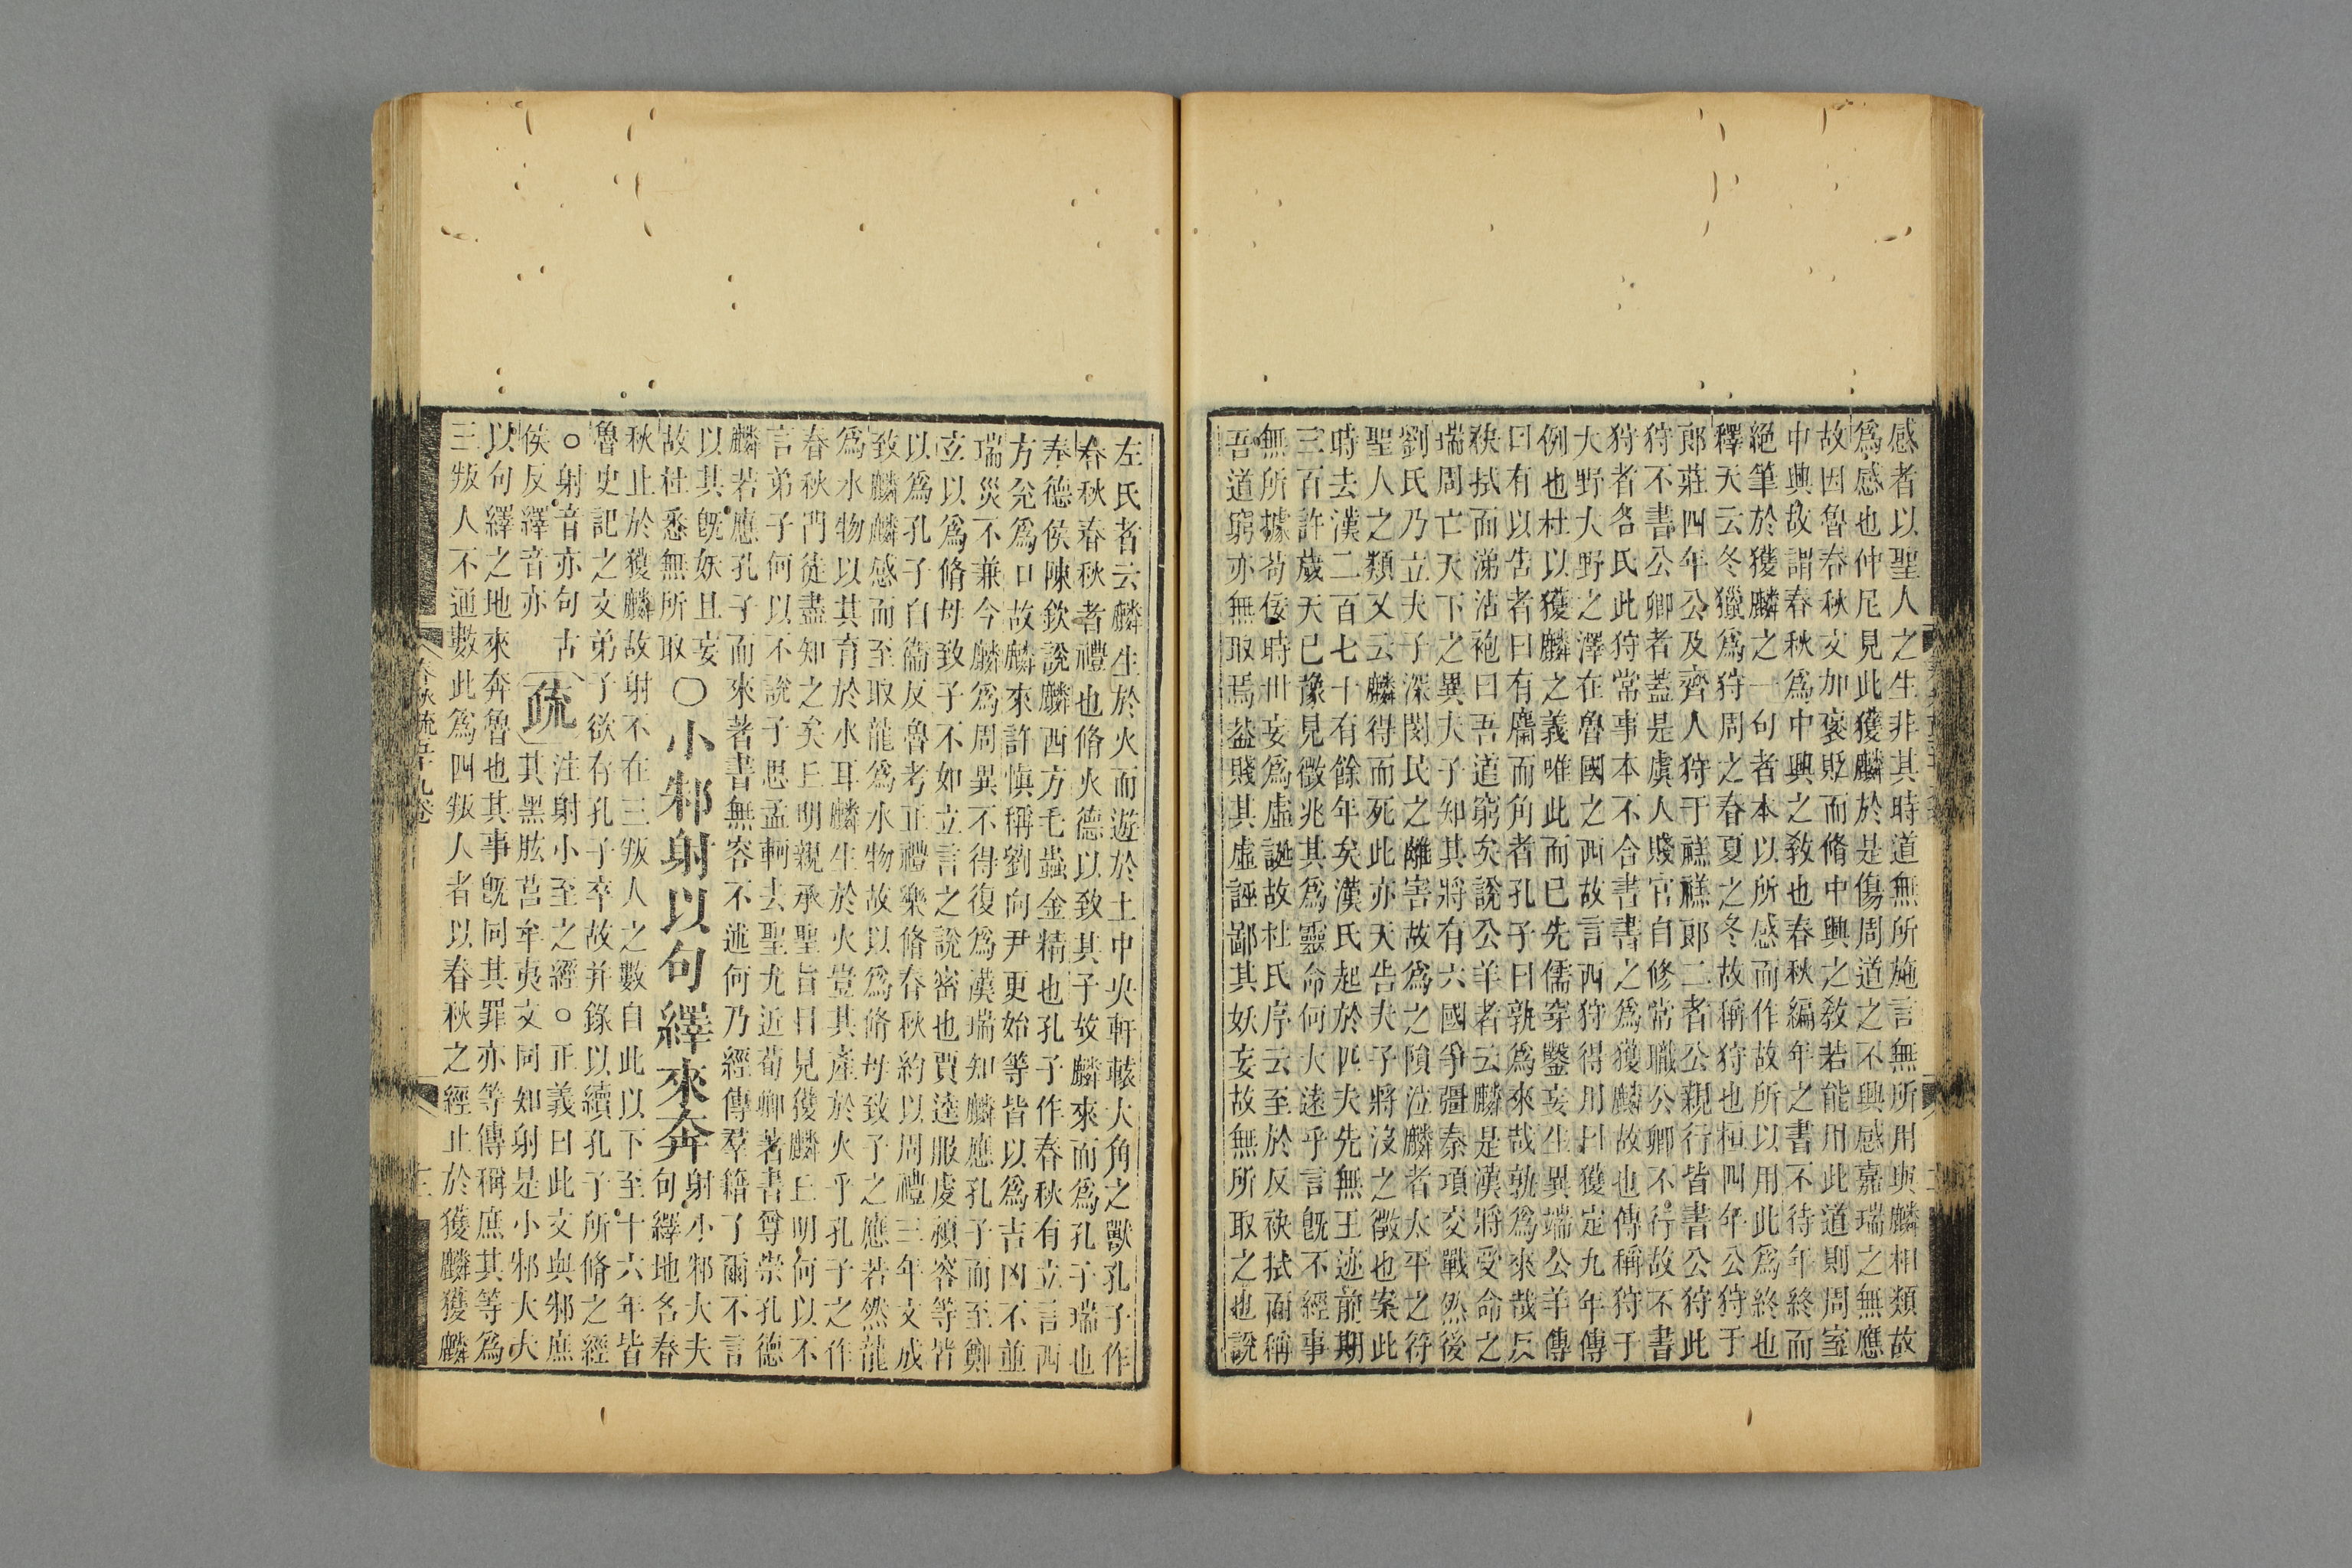 感者以聖人之生非其時道無所施言無所用與麟相類故
爲感也仲尼見此獲麟於是傷周道之不興感嘉瑞之無應
故因魯春秋文加褒貶而脩中興之教若能用此道則周室
中興故謂春秋爲中興之教也春秋編年之書不待年終而
絕筆於獲麟之一句者本以所感而作故所以用此爲終也
釋天云冬獵爲狩周之春夏之冬故稱狩也桓四年公狩于
郎莊四年公及齊人狩于禚禚郎二者公親行皆書公狩此
狩不書公卿者蓋是虞人賤官自修常職公卿不行故不書
狩者各氏此狩常事本不合書書之爲獲麟故也傳稱狩于
大野大野之澤在魯國之西故言西狩得用曰獲定九年傳
例也杜以獲麟之義唯此而已先儒穿鑿妄生異端公羊傳
曰有以告者曰有麕而角者孔子曰孰爲來哉孰爲來哉反
袂拭而涕沾袍曰吾道窮矣說公羊者云麟是漢將受命之
瑞周亡天下之異夫子知其將有六國爭彊秦項交戰然後
劉氏乃立夫子深閔民之離害故爲之隕泣麟者太平之符
聖人之類又云麟得而死此亦天告夫子將沒之徵也案此
時去漢二百七十有餘年矣漢氏起於匹夫先無王迹前期
三百許歲天已豫見徵兆其爲靈命何大遠乎言旣不經事
無所據苟佞時世妄爲虛誕故杜氏序云至於反袂拭面稱
吾道窮亦無取焉蓋賤其虛誣鄙其妖妄故無所取之也說
左氏者云麟生於火而遊於土中央軒轅大角之獸孔子作
春秋春秋者禮也脩火德以致其子故麟來而爲孔子瑞也
奉德侯陳欽說麟西方毛蟲金精也孔子作春秋有立言西
方兌爲口故麟來許慎稱劉向尹更始等皆以爲吉凶不並
瑞災不兼今麟爲周異不得復爲漢瑞知麟應孔子而至鄭
玄以爲脩母致子不如立言之說密也賈逵服虔潁容等皆
以爲孔子自衞反魯考正禮樂脩春秋約以周禮三年文成
致麟麟感而至取龍爲水物故以爲脩母致子之應若然龍
爲水物以其育於水耳麟生於火豈其產於火乎孔子之作
春秋門徒盡知之矣丘明親承聖旨目見獲麟丘明何以不
言弟子何以不說子思孟軻去聖尤近荀卿著書尊崇孔德
麟若應孔子而來著書無容不述何乃經傳羣籍了爾不言
以其旣妖且妄
故杜悉無所取
○小邾射以句繹來奔
射小邾大夫
句繹地名春
秋止於獲麟故射不在三叛人之數自此以下至十六年皆
魯史記之文弟子欲存孔子卒故并錄以續孔子所脩之經
○射音亦句古
侯反繹音亦
疏
注射小至之經○正義曰此文與邾庶
其黑肱莒牟夷文同知射是小邾大夫
以句繹之地來奔魯也其事旣同其罪亦等傳稱庶其等爲
三叛人不通數此爲四叛人者以春秋之經止於獲麟獲麟
春秋疏五十九卷